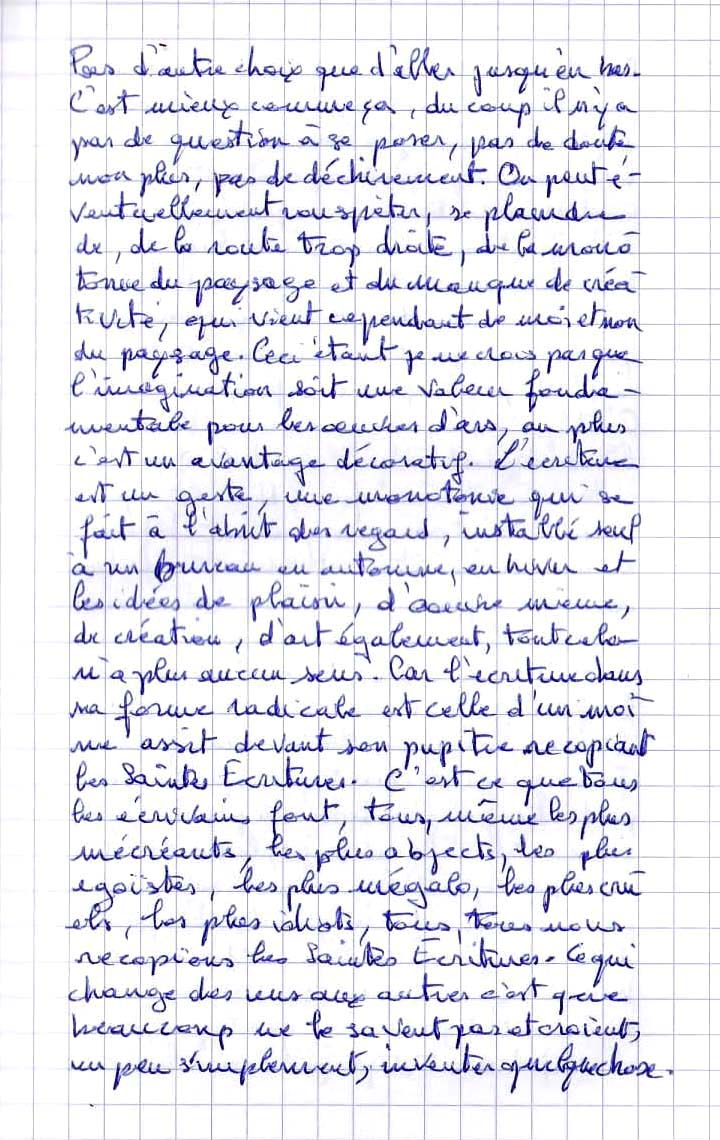 Pas d'autre choix que d'aller jusqu'en bas.
C'est mieux comme ça, du coup il n'y a
pas de question à se poser, pas de doute
non plus, pas de déchirement. On peut é-
ventuellement rouspéter, se plaindre
de, de la route trop droite, de la mono
tonie du paysage et du manque de créa
tivité, qui vient cependant de moi et non
du paysage. Ceci étant je ne crois pas que
l'imagination soit une valeur fonda-
mentale pour les oeuvres d'ars, au plus
c'est un avantage décoratif. L'écriture
est un geste, une monotonie qui se
fait à l'abrit des regard, installé seul
à un bureau en automne, en hiver et
les idées de plaisir, d'oeuvre même,
de création, d'art également, tout cela
n'a plus aucun sens. Car l'écriture dans
sa forme radicale est celle d'un moi
ne assit devant son pupitre recopiant
les Saintes Ecritures. C'est ce que tous
les écrivains font, tous, même les plus
mécréants, les plus abjects, les plus
égoïstes, les plus mégalo, les plus cru
els, les plus idiots, tous, tous nous
recopions les Saintes Ecritures. Ce qui
change des uns aux autres c'est que
beaucoup ne le savent pas et croient,
un peu simplement, inventer quelque chose.